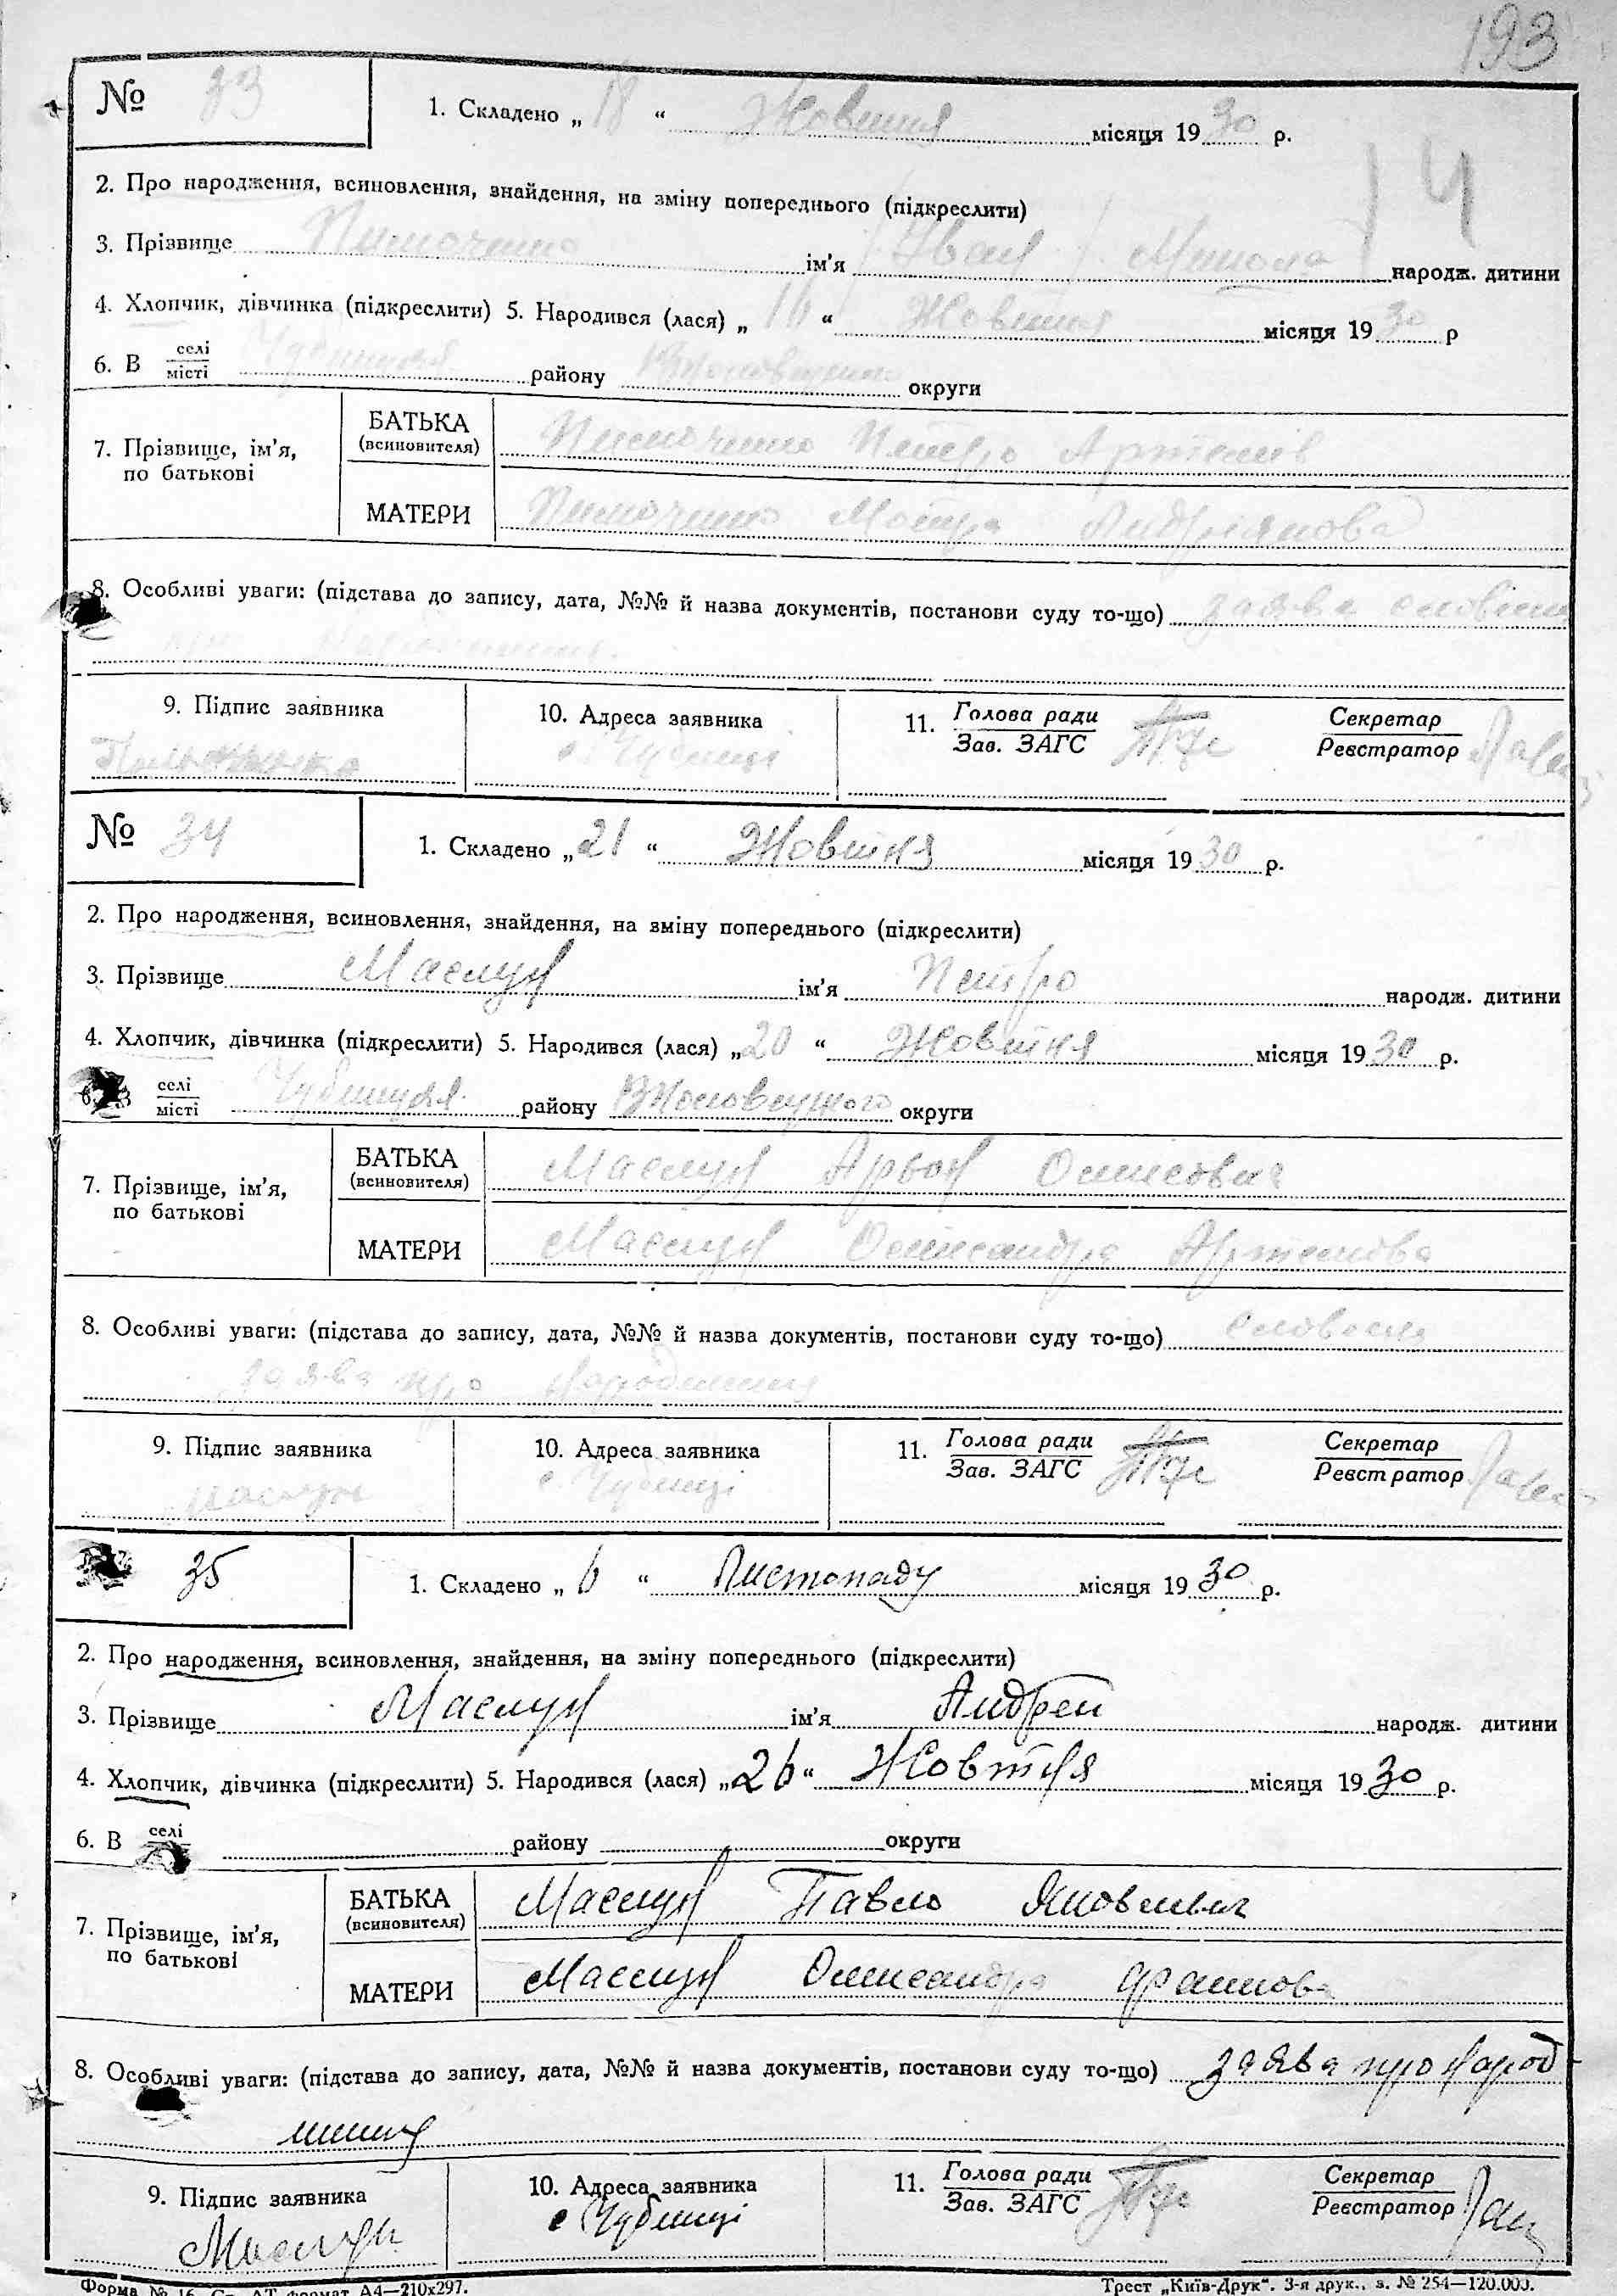 193
№ 33
1. Складено „ 18 “ Жовтня місяця 1930 р.
14
2. Про народження, всиновлення, знайдення, на зміну попереднього (підкреслити)
3. Прізвище ім’я Іван Микола народж. дитини
4. Хлопчик, дівчинка (підкреслити) 5. Народився (лася) „ 16 “ Жовтня місяця 1930 р
6. В селі/місті району округи
7. Прізвище, ім’я, по батькові
БАТЬКА (всиновителя) Петро Артемів
МАТЕРИ Мотря Андріянова
8. Особливі уваги: (підстава до запису, дата, №№ й назва документів, постанови суду то-що) заява словесна
про народження
9. Підпис заявника
10. Адреса заявника с. Чубинці
11. Голова ради/Зав. ЗАГС Секретар/Реєстратор
№ 34
1. Складено „ 21 “ Жовтня місяця 1930 р.
2. Про народження, всиновлення, знайдення, на зміну попереднього (підкреслити)
3. Прізвище Маслун ім’я Петро народж. дитини
4. Хлопчик, дівчинка (підкреслити) 5. Народився (лася) „ 20 “ Жовтня місяця 1930 р.
селі/місті району округи
7. Прізвище, ім’я, по батькові
БАТЬКА (всиновителя) Маслун
МАТЕРИ Маслун Олександра Артемова
8. Особливі уваги: (підстава до запису, дата, №№ й назва документів, постанови суду то-що) словесна
заява про народження
9. Підпис заявника Маслун
10. Адреса заявника с. Чубинці
11. Голова ради/Зав. ЗАГС Секретар/Реєстратор
35
1. Складено „ 6 “ Листопаду місяця 1930 р.
2. Про народження, всиновлення, знайдення, на зміну попереднього (підкреслити)
3. Прізвище Маслун ім’я Андрей народж. дитини
4. Хлопчик, дівчинка (підкреслити) 5. Народився (лася) „ 26 “ Жовтня місяця 1930 р.
6. В селі району округи
7. Прізвище, ім’я, по батькові
БАТЬКА (всиновителя) Маслун Павло Яковлевич
МАТЕРИ Маслун Олександра
8. Особливі уваги: (підстава до запису, дата, №№ й назва документів, постанови суду то-що) заява про народ
9. Підпис заявника Маслун
10. Адреса заявника с Чубинці
11. Голова ради/Зав. ЗАГС Секретар/Реєстратор
Форма № 16. формат А4—210х297.
Трест „Київ-Друк“. 3-я друк., з. № 254—120.000.